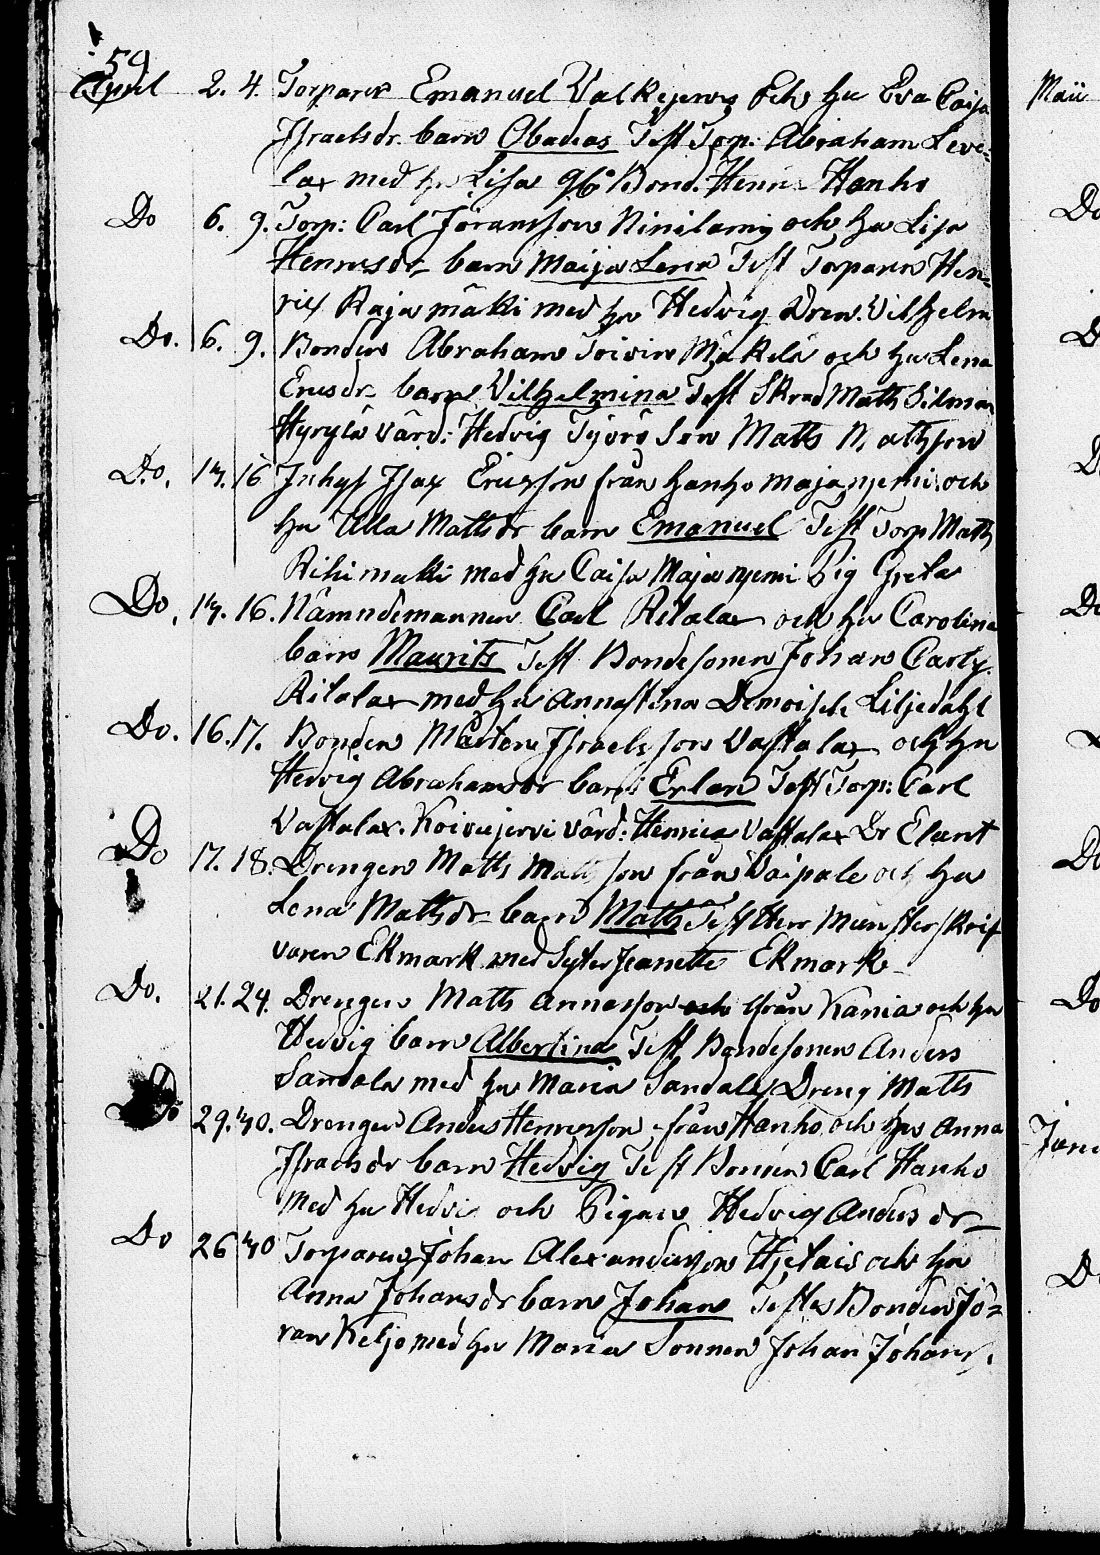 59
April 2. 4. Torparen Emanuel Valkejervi Och hu Eva Caisa
Israelsdr. barn Obadias Test Torp: Abraham Leve-
lax med hu Lisa Bond. Henric Hanho
Do 6. 9. Torp: Carl Jöransson Ninilamj och hu Lisa
Henricsdr barn Maija Lena Test Torparen Hen-
rik Rajamäki med hu Hedvig Dren. Vilhelm
Do. 6. 9. Bonden Abraham Toivin Mäkelä och hu Lena
Ericsdr barn Vilhelmina Test Skrad Matts Silman
Hyrylä värd: Hedvig Son Matts Mattsson
Do. 14. 16 Inhys Isax Ericsson från Hanho majanjemi och
hu Ulla Mattsdr barn Emanuel Test Torp Matts
Rihimaki med hu Caisa Majanjemi Pig Greta
Do. 14. 16. Nämndemannen Carl Ritalax och hu Carolina
barn Maurits Test Bondesonen Johan Carls.
Ritalax med hu Annastina Demoiselle Liljedahl
Do. 16. 17. Bonden Mårten Israelsson Vastalax och hu
Hedvig Abrahamsdr barn: Erland Test Torp: Carl
Vastalax. Koivujervi värd: Henrica Vastalax Dr Elant
Do 17. 18. Drengen Matts Mattsson från Vaipale och hu
Lena Mattsdr barn Matts Test Herr Munsterskrif
varen Ekmark med Syster Jeanette Ekmark
Do. 21. 24. Drengen Matts Annasson från Kania och hu
Hedvig barn Albertina Test Bondesonen Anders
Sandala med hu Maria Sandala Dreng Matts
Do 29. 40. Drengen Anders Henricsson från Hanho och hu Anna
Israelsdr barn Hedvig Test Bonden Carl Hanho
med hu Hedvi och Pigan Hedvig Andersdr
Do 26 40 Torparen Johan Alexandersson Hjetais och hu
Anna Johansdr barn Johan Testes Bonden Jö-
ran Keljo med hu Maria Sonnen Johan Johans.
Maii
Do
Do
Do
Do
Do
Do
Juni
Do